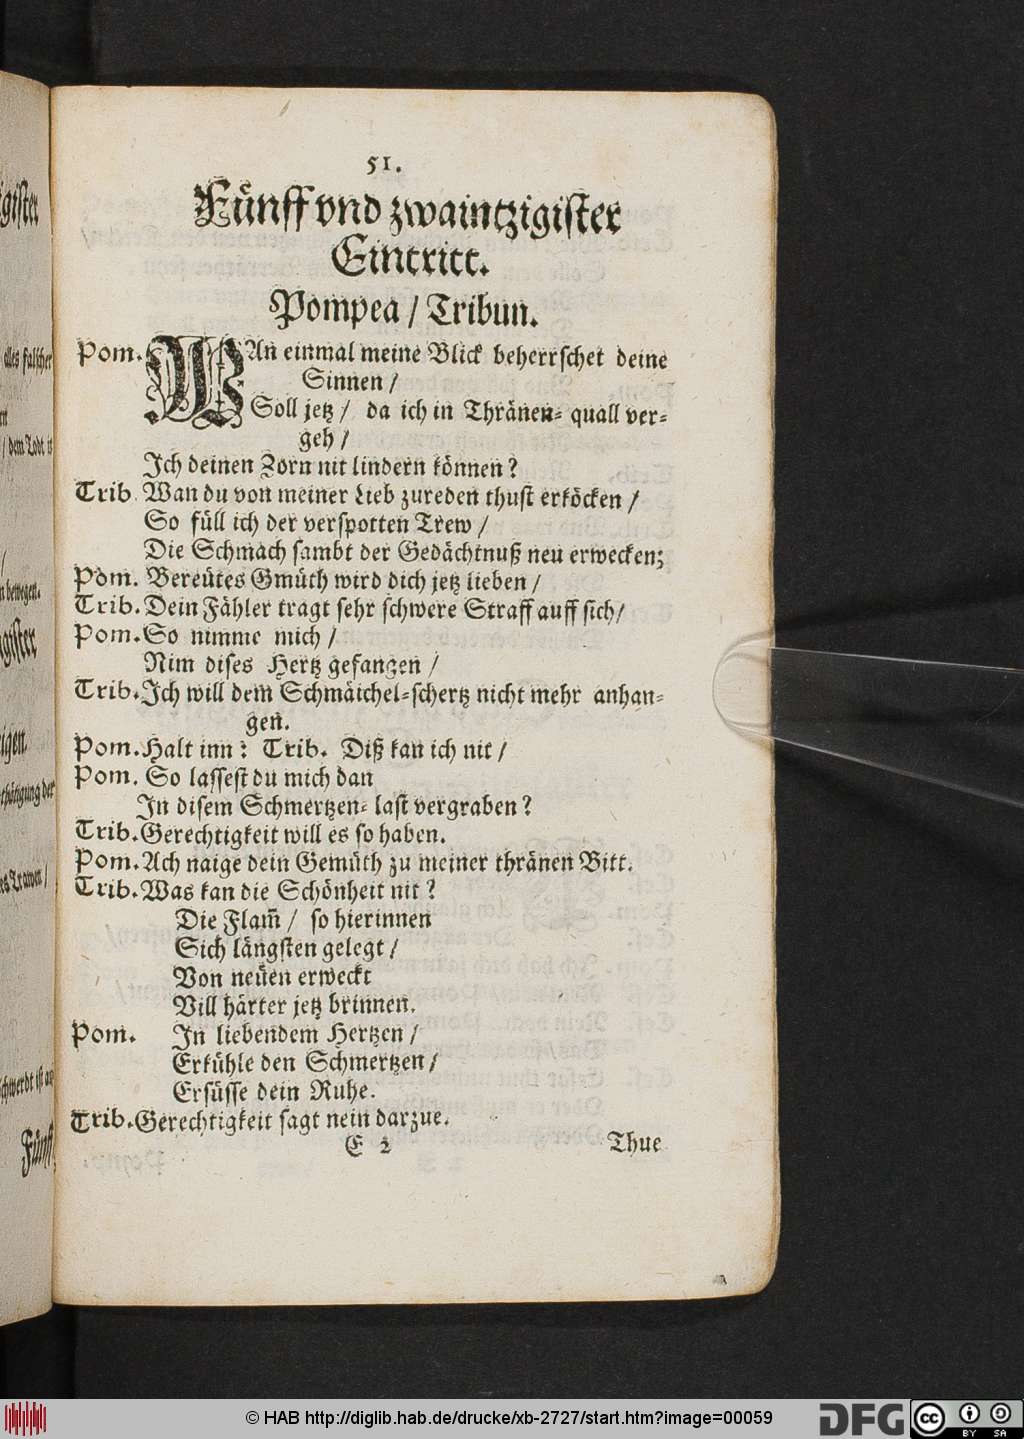 51.
Fünff vnd zwaintzigister
Eintritt.
Pompea / Tribun.
Pom. WAn einmal meine Blick beherrschet deine
Sinnen /
Soll jetz / da ich in Thränen- quall ver-
geh /
Ich deinen Zorn nit lindern können?
Trib. Wan du von meiner Lieb zureden thust erköcken /
So füll ich der verspotten Trew /
Die Schmach sambt der Gedächtnuß neu erwecken;
Pom. Bereütes Gmüth wird dich jetz lieben /
Trib. Dein Fähler tragt sehr schwere Straff auff sich /
Pom. So nimme mich /
Nim dises Hertz gefangen /
Trib. Ich will dem Schmäichel-schertz nicht mehr anhan-
gen.
Pom. Halt inn: Trib. Diß kan ich nit /
Pom. So lassest du mich dan
In disem Schmertzen- last vergraben?
Trib. Gerechtigkeit will es so haben.
Pom. Ach naige dein Gemüth zu meiner thränen Bitt.
Trib. Was kan die Schönheit nit?
Die Flam̃ / so hierinnen
Sich längsten gelegt /
Von neüen erweckt
Vill härter jetz brinnen.
Pom. In liebendem Hertzen /
Erkühle den Schmertzen /
Ersüsse dein Ruhe.
Trib. Gerechtigkeit sagt nein darzue.
E 2 Thue
© HAB http://diglib.hab.de/drucke/xb-2727/start.htm?image=00059
DFG
cc BY SA